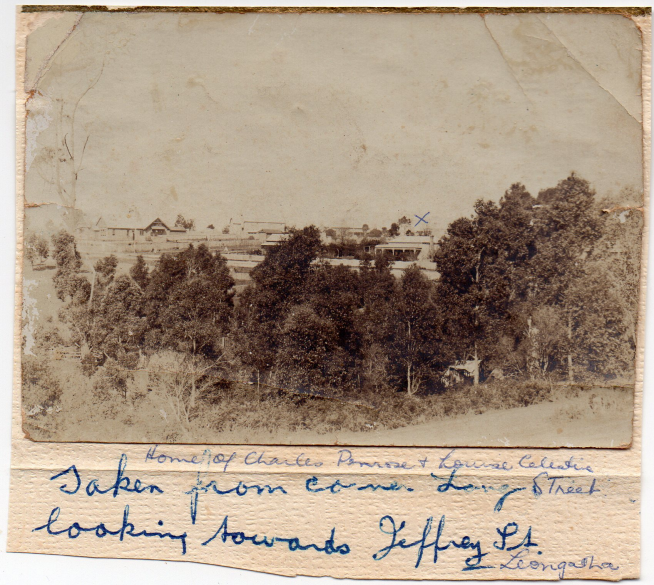 X
Home of Charles Penrose + Louise Celestia
Taken from corner Long Street
looking towards Jeffrey St.
Leongatha